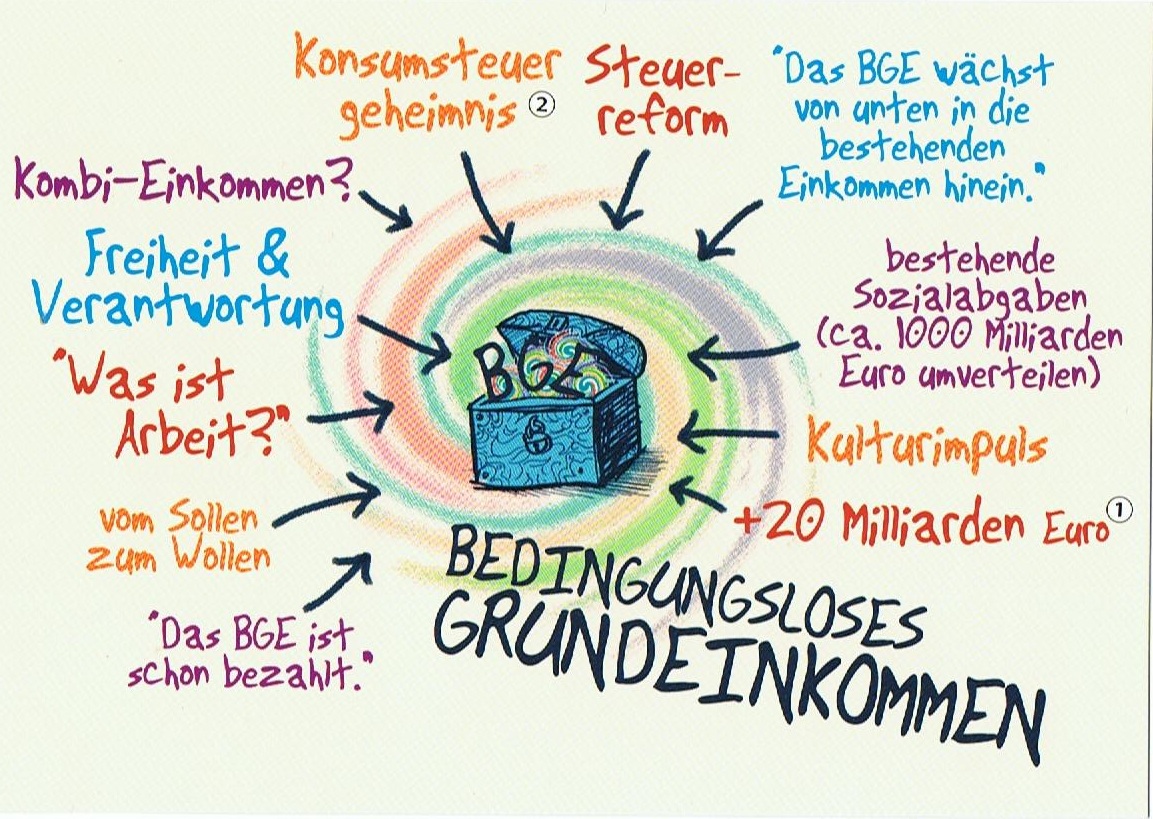 Konsumsteuer
geheimnis ②
Steuer-
reform
"Das BGE wächst
von unten in die
bestehenden
Einkommen hinein."
Kombi-Einkommen?
Freiheit &
Verantwortung
bestehende
Sozialabgaben
(ca. 1000 Milliarden
Euro umverteilen)
"Was ist
Arbeit?"
BGE
Kulturimpuls
vom Sollen
zum Wollen
+20 Milliarden Euro ①
"Das BGE ist
schon bezahlt."
BEDINGUNGSLOSES
GRUNDEINKOMMEN